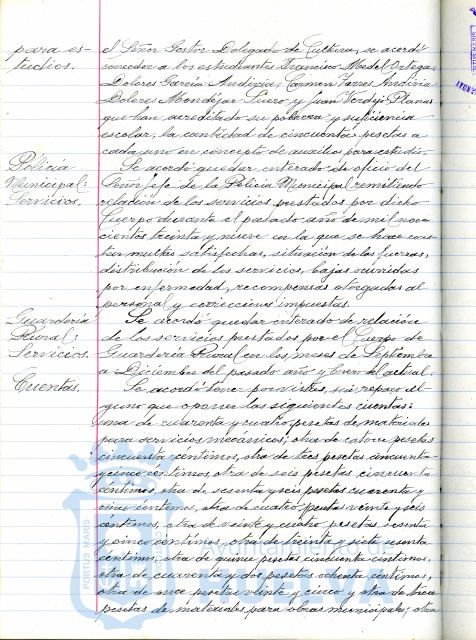 para es-
tudios.
el Señor Gestor Delegado de Cultura, se acordó
conceder a los estudiantes Francisco Medel Ortega;
Dolores García Andivia; Carmen Torres Andivia
Dolores Mondejar Suero y Juan Verdejo Planas
que han acreditado su pobreza y suficiencia
escolar, la cantidad de cincuenta pesetas a
cada uno en concepto de auxilios para estudio.
Policia
Municipal:
Servicios.
Se acordó quedar enterado de oficio del
Señor Jefe de la Policia Municipal remitiendo
relación de los servicios prestados por dicho
Cuerpo durante el pasado año de mil nove
cientos treinta y nueve en la que se hace cons
tar multas satisfechas, situación de las fuerzas,
distribución de los servicios, bajas ocurridas
por enfermedad, recompensas otorgadas al
personal y correcciones impuestas.
Guardería
Rural:
Servicios.
Se acordó quedar enterado de relación
de los servicios prestados por el Cuerpo de
Guardería Rural en los meses de Septiembre
a Diciembre del pasado año y Enero del actual.
Cuentas.
Se acordó tener por vistas, sin reparo al
guno que oponer las siguientes cuentas:
una de cuarenta y cuatro pesetas de materiales
para servicios mecánicos; otra de catorce pesetas
cincuenta céntimos, otra de tres pesetas cincuenta
y cinco céntimos, otra de seis pesetas cincuenta
céntimos, otra de sesenta y seis pesetas cuarenta y
cinco céntimos, otra de cuatro pesetas veinte y seis
céntimos, otra de veinte y cuatro pesetas sesenta
y cinco céntimos, otra de treinta y siete sesenta
céntimos, otra de quince pesetas cincuenta céntimos,
otra de cuarenta y dos pesetas ochenta céntimos,
otra de once pesetas veinte y cinco y otra de trece
pesetas de materiales para obras municipales; otra
PORTUS MARIS
Ayuntamiento de
HUELVA